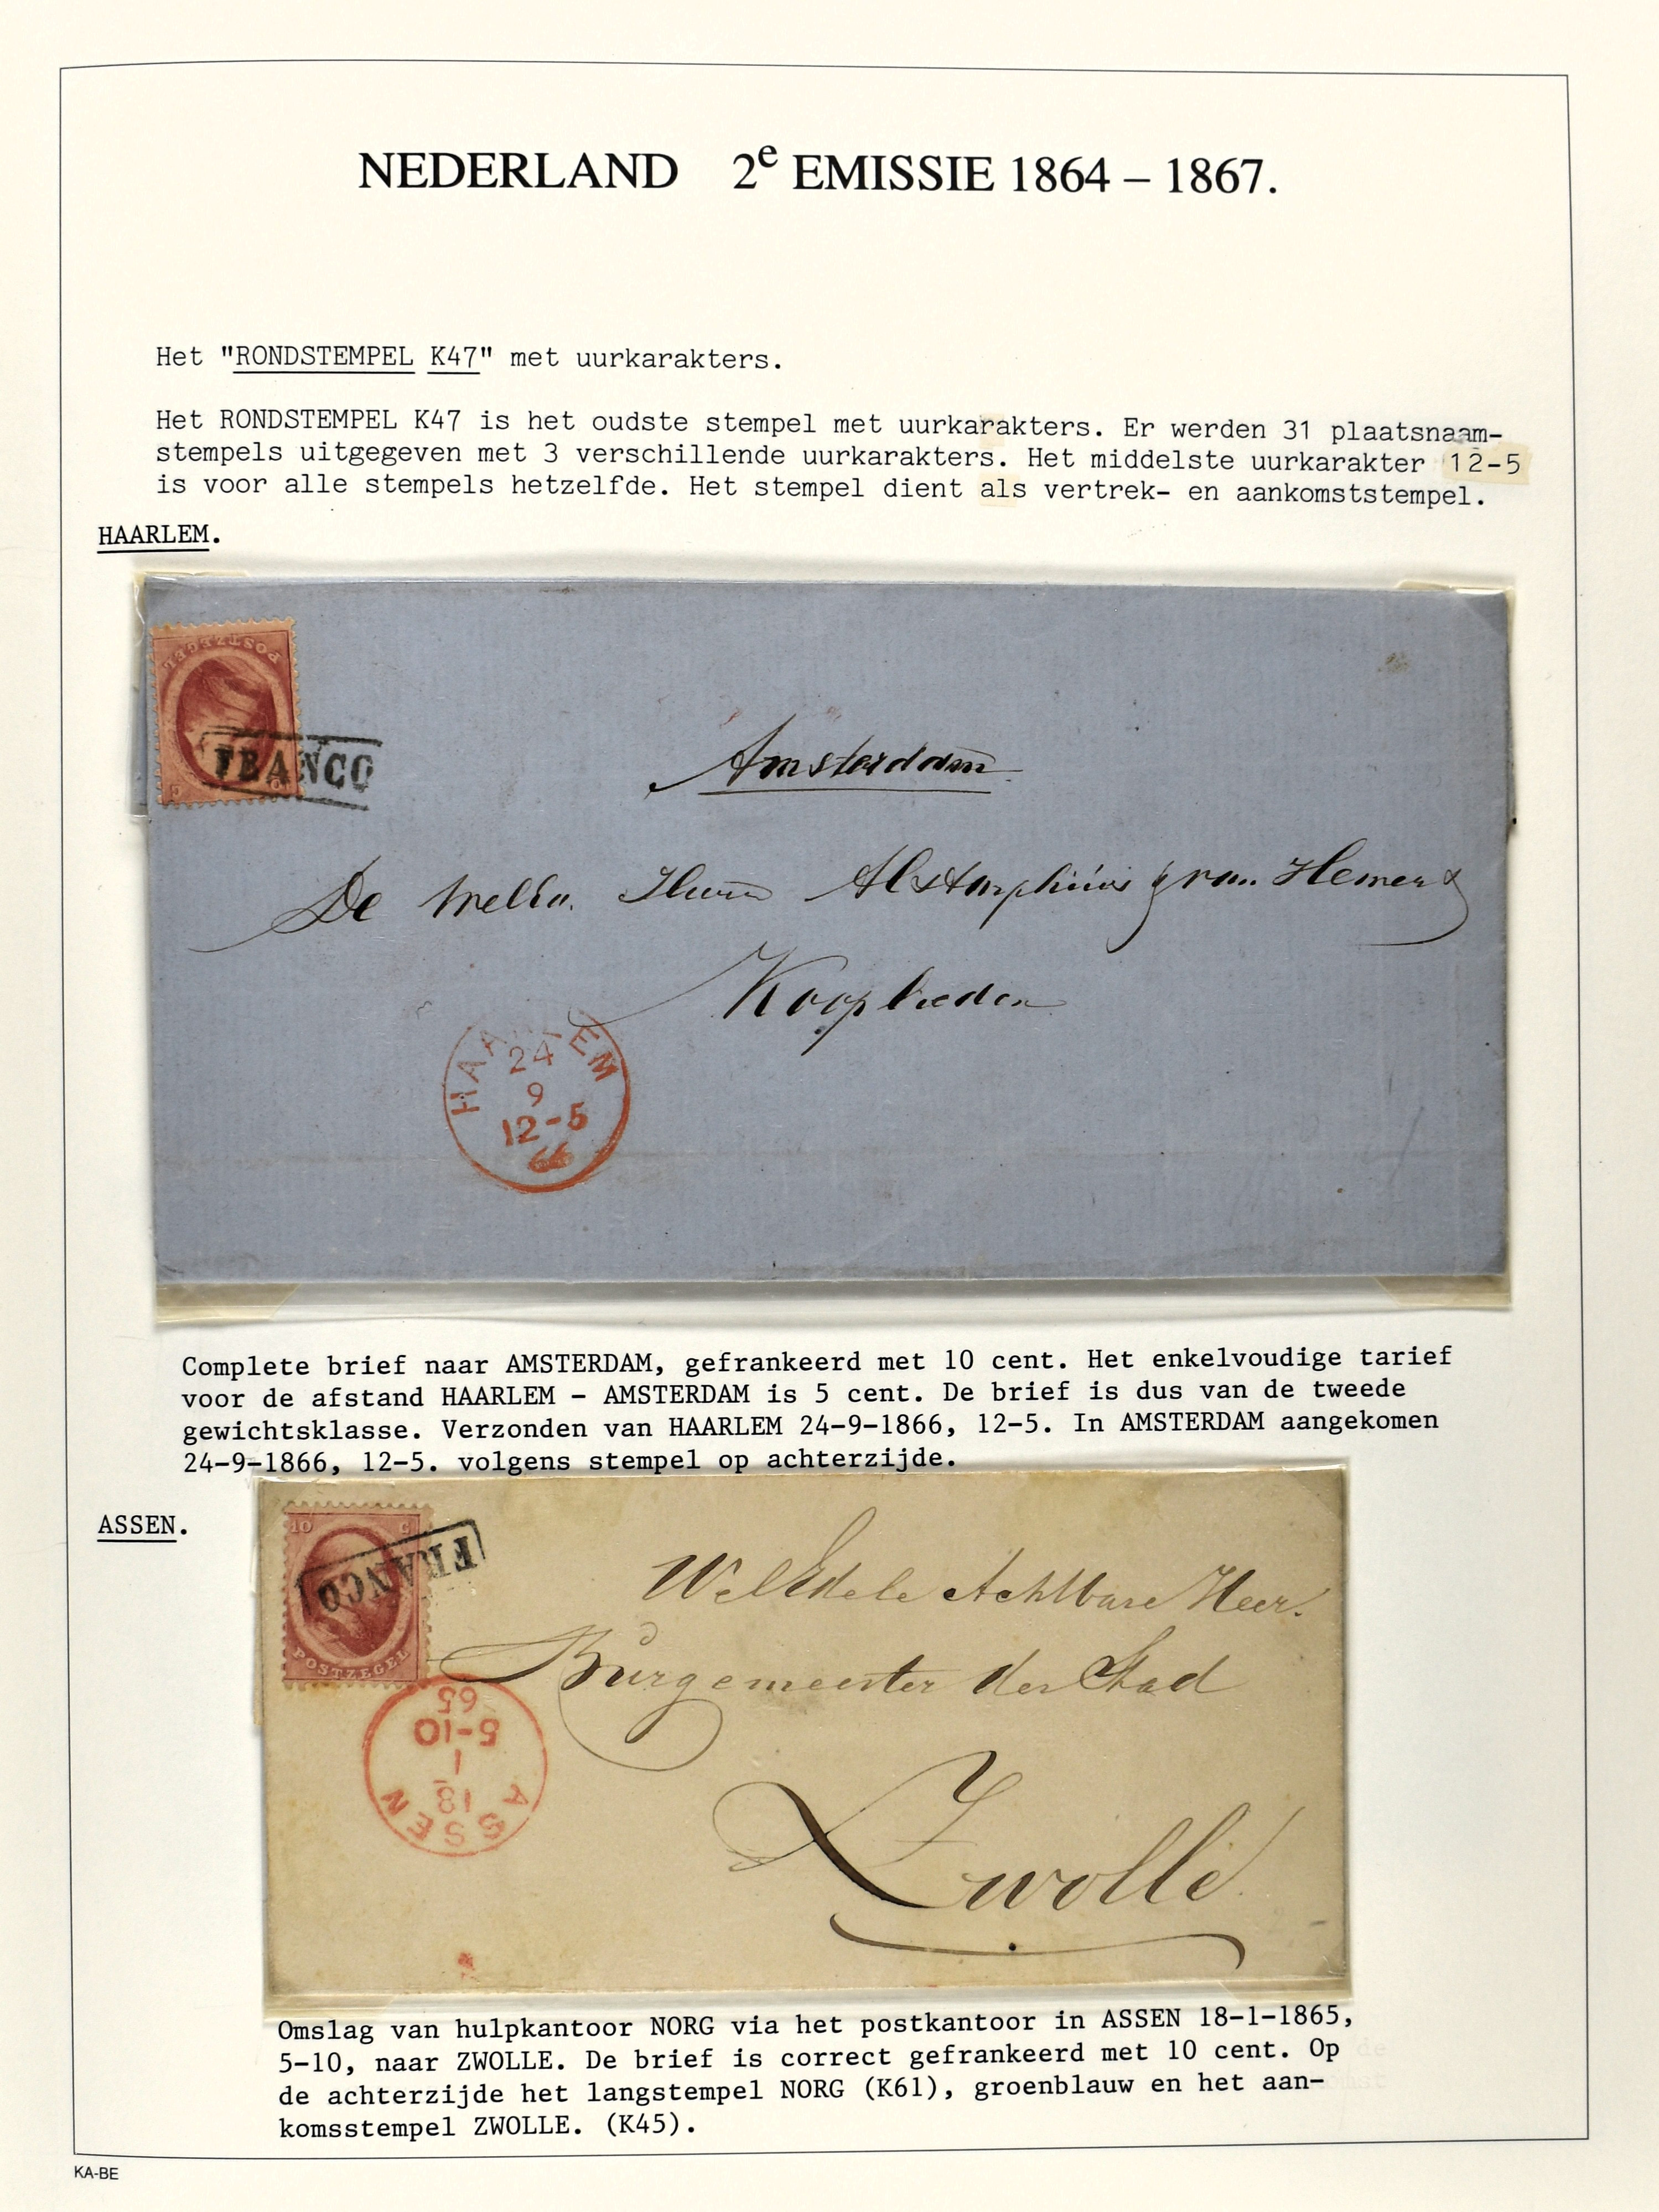 NEDERLAND 2e EMISSIE 1864 – 1867.
Het "RONDSTEMPEL K47" met uurkarakters.
Het RONDSTEMPEL K47 is het oudste stempel met uurkarakters. Er werden 31 plaatsnaam-
stempels uitgegeven met 3 verschillende uurkarakters. Het middelste uurkarakter 12-5
is voor alle stempels hetzelfde. Het stempel dient als vertrek- en aankomststempel.
HAARLEM.
POSTZEGEL
FRANCO
Amsterdam
De Heeren van Hemert
Kooplieden
HAARLEM
24
9
12-5
66
Complete brief naar AMSTERDAM, gefrankeerd met 10 cent. Het enkelvoudige tarief
voor de afstand HAARLEM - AMSTERDAM is 5 cent. De brief is dus van de tweede
gewichtsklasse. Verzonden van HAARLEM 24-9-1866, 12-5. In AMSTERDAM aangekomen
24-9-1866, 12-5. volgens stempel op achterzijde.
ASSEN.
10 C
FRANCO
POSTZEGEL
WelEdele Achtbare Heer.
Burgemeester der Stad
Zwolle
ASSEN
18
1
5-10
65
Omslag van hulpkantoor NORG via het postkantoor in ASSEN 18-1-1865,
5-10, naar ZWOLLE. De brief is correct gefrankeerd met 10 cent. Op
de achterzijde het langstempel NORG (K61), groenblauw en het aan-
komsstempel ZWOLLE. (K45).
KA-BE